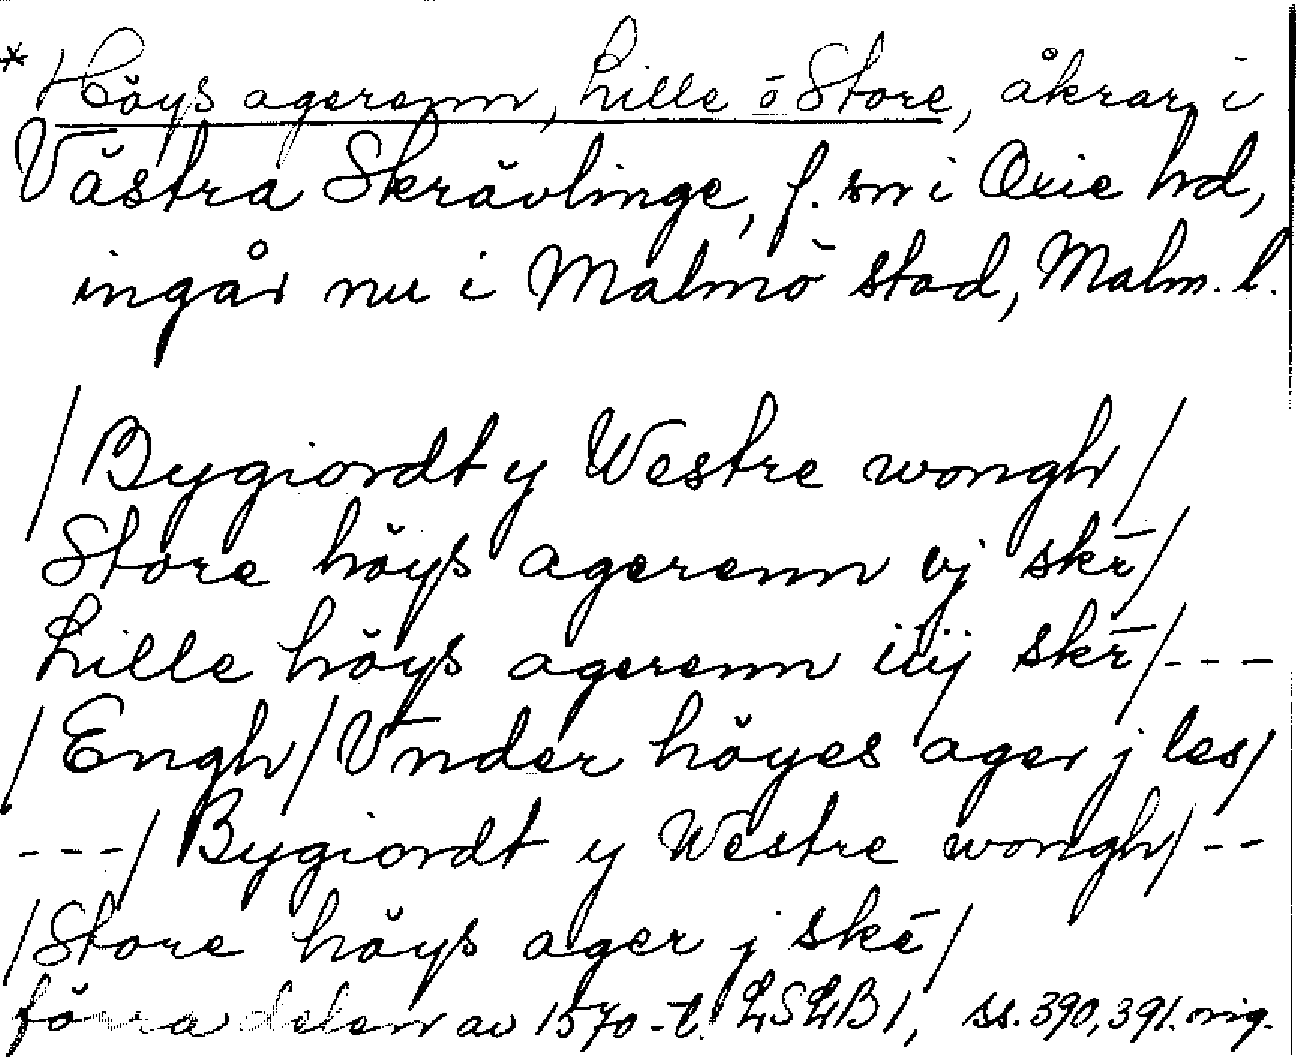 * Höys agerenn, Lille o Store, åkrar i
Västra Skrävlinge, f. sn i Oxie hd,
ingår nu i Malmö stad, Malm. l.
/Bygiordt y Westre wongh/
Store höys agerenn vj skr̄/
Lille höys agerenn iiij skr̄/---
/Engh/Vnder höyes ager j les/
---/Bygiordt y Westre wongh/--
/Store höys ager j skē/
förra delen av 1570-t. LSLB1, ss. 390, 391. orig.